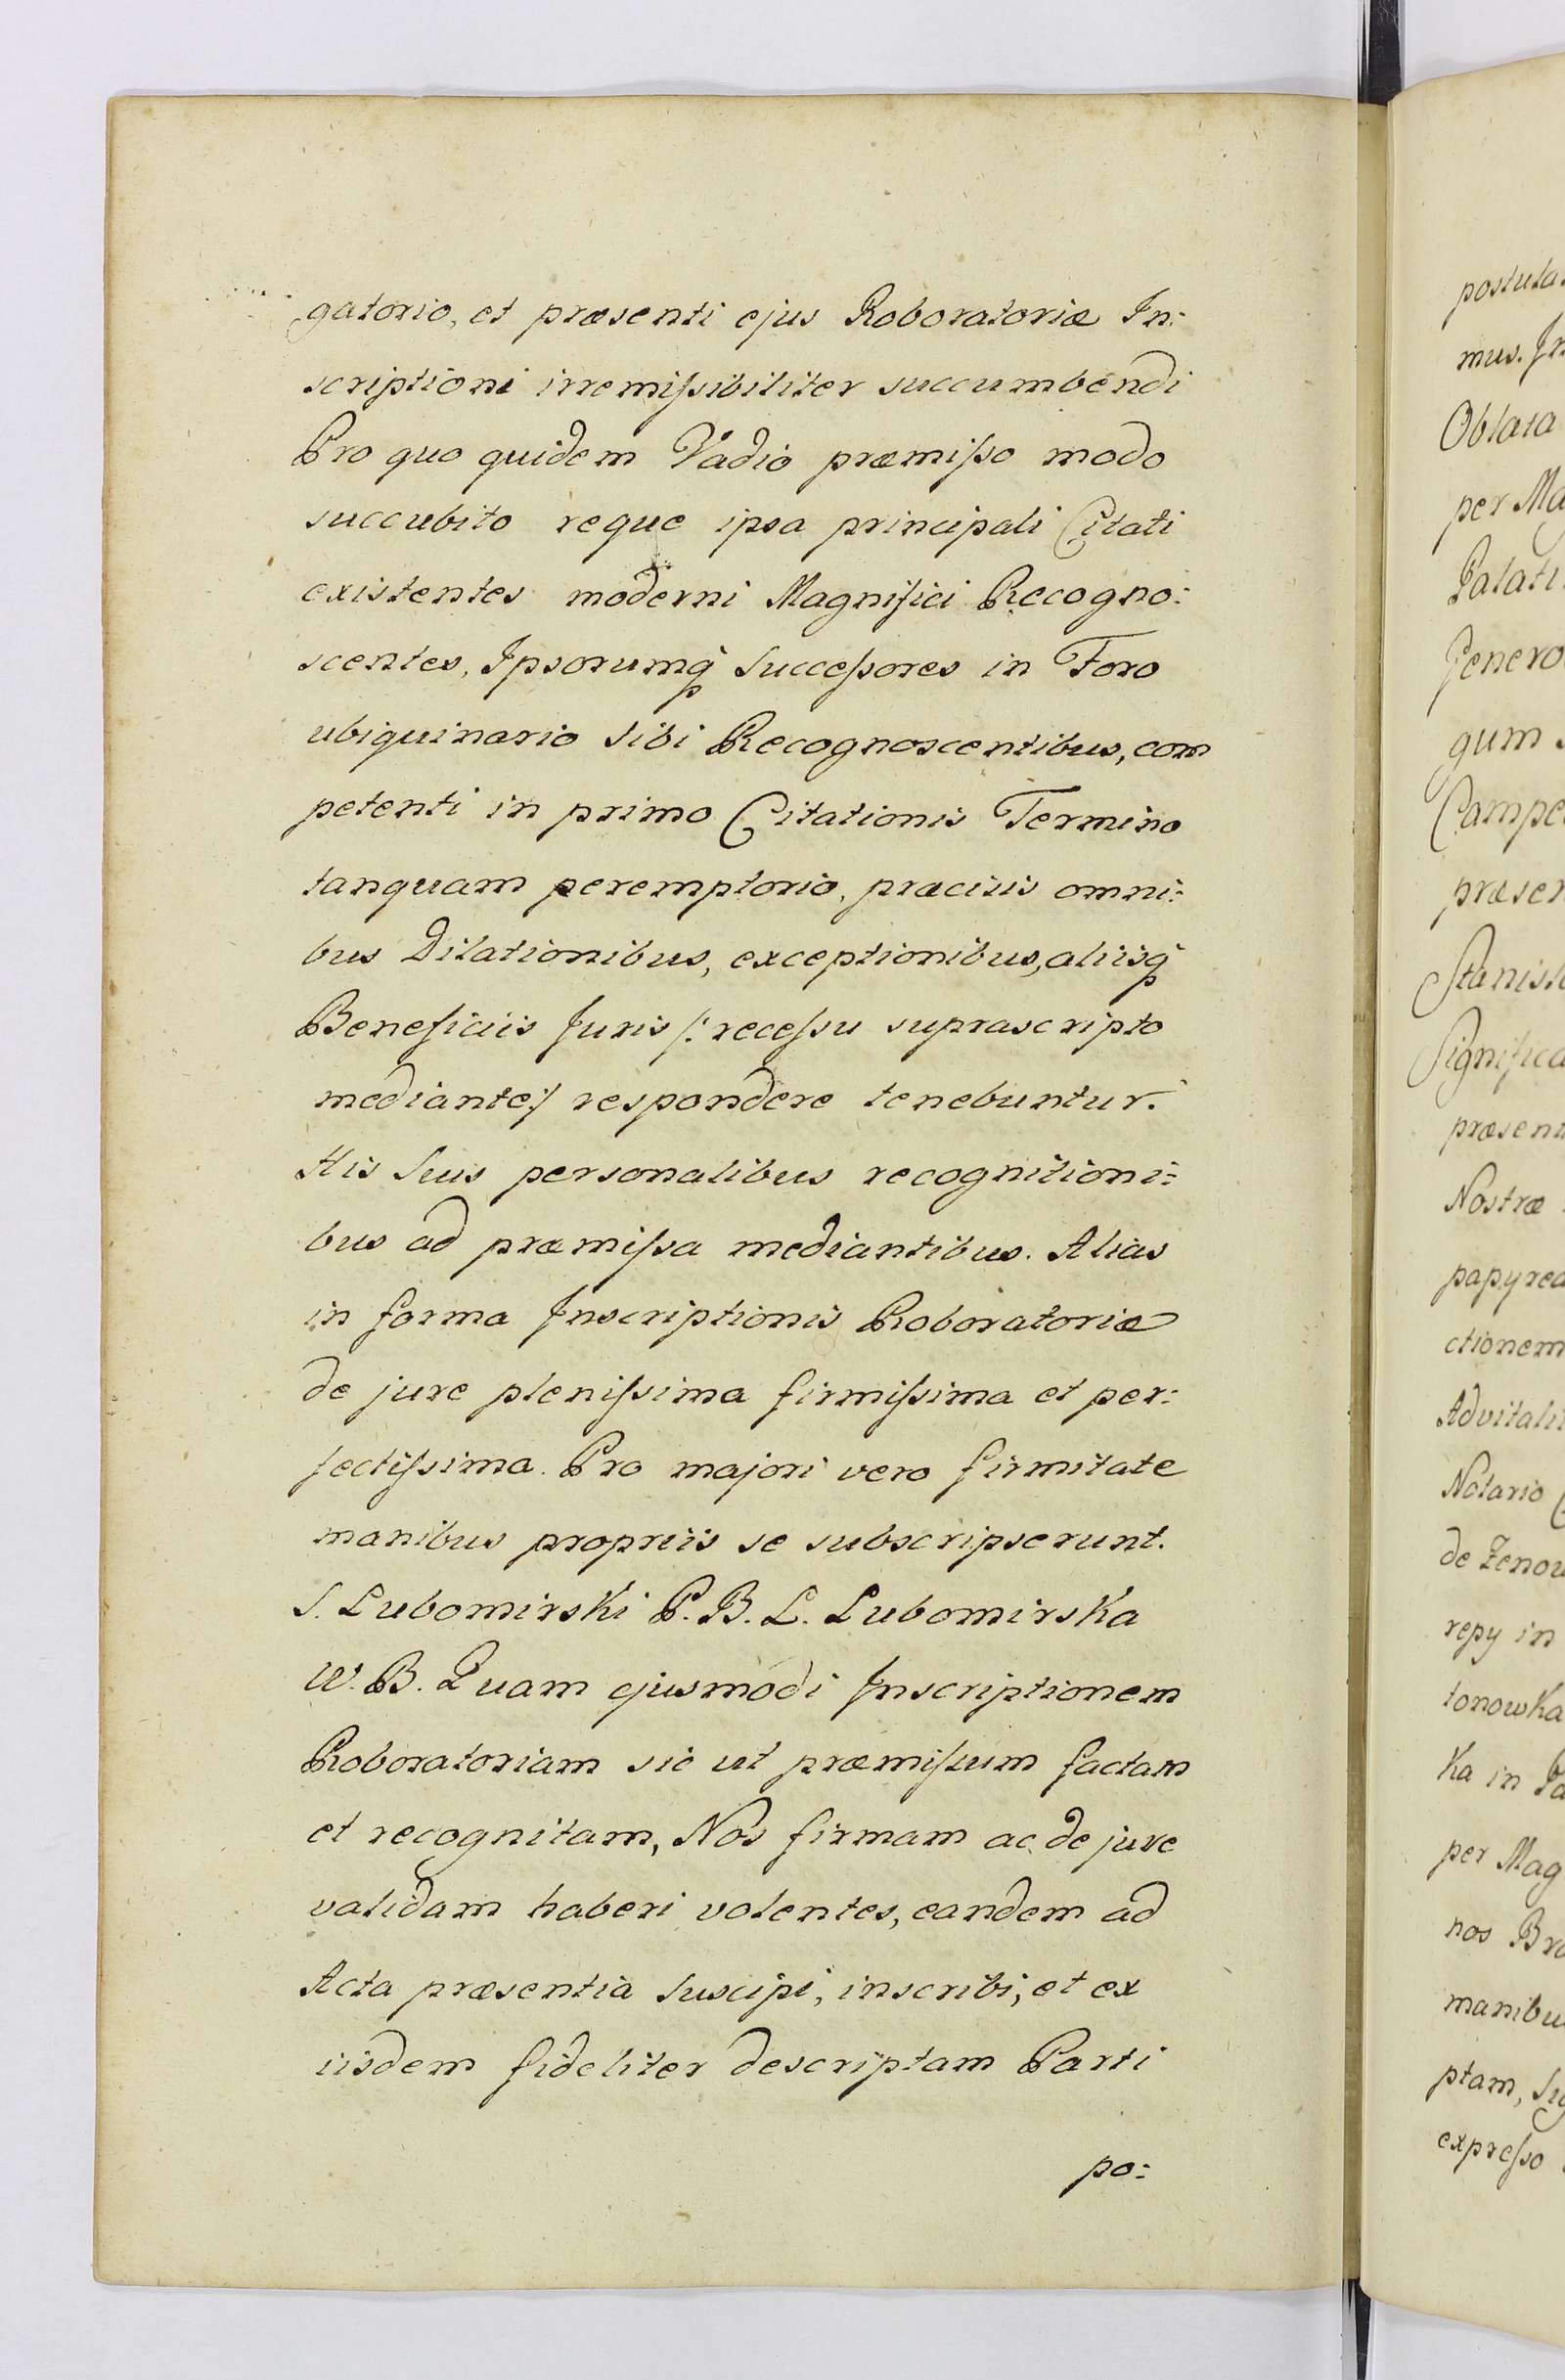 gatorio, et præsenti ejus Roboratoriæ In:
scriptioni irremiſsibiliter succumbendi
Pro quo quidem Vadio præmiſso modo
succubito reque ipsa principali Citati
existentes moderni Magnifici Recogno:
scentes, Ipsorumq̃ Succeſsores in Foro
ubiquinario sibi Recognoscentibus, com
petenti in primo Citationis Termino
tanquam peremptorio, præcisis omni:
bus Dilationibus, exceptionibus, aliisq̃
Beneficiis Juris /: receſsu suprascripto
mediante :/ respondere tenebuntur.
His Suis personalibus recognitioni:
bus ad præmiſsa mediantibus. Alias
in forma Inscriptionis Roboratoriæ
de jure pleniſsima firmiſsima et per:
fectiſsima. Pro majori vero firmitate
manibus propriis se subscripserunt.
S. Lubomirski P. B. L. Lubomirska
W. B. Quam ejusmodi Inscriptionem
Roboratoriam sic ut præmiſsum factam
et recognitam, Nos firmam ac de jure
validam haberi volentes, eandem ad
Acta præsentia Suscipi, inscribi, et ex
iisdem fideliter descriptam Parti
po:
postula
mus. In
Oblata
per Ma
Palati
Genero
gum
Campe
præsen
Stanisl
Significa
præsen
Nostræ
papyrea
ctionem
Advitali
Notario
de Zenow
repy in
tonowka
Ka in Pa
per Mag
nos Bra
manibu
ptam, Sig
expreſso